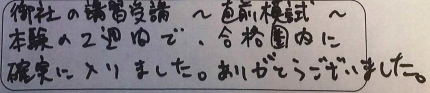 御社の講習受講〜直前模試〜
本験の2週内で、合格圏内に
確実に入りました。ありがとうございました。